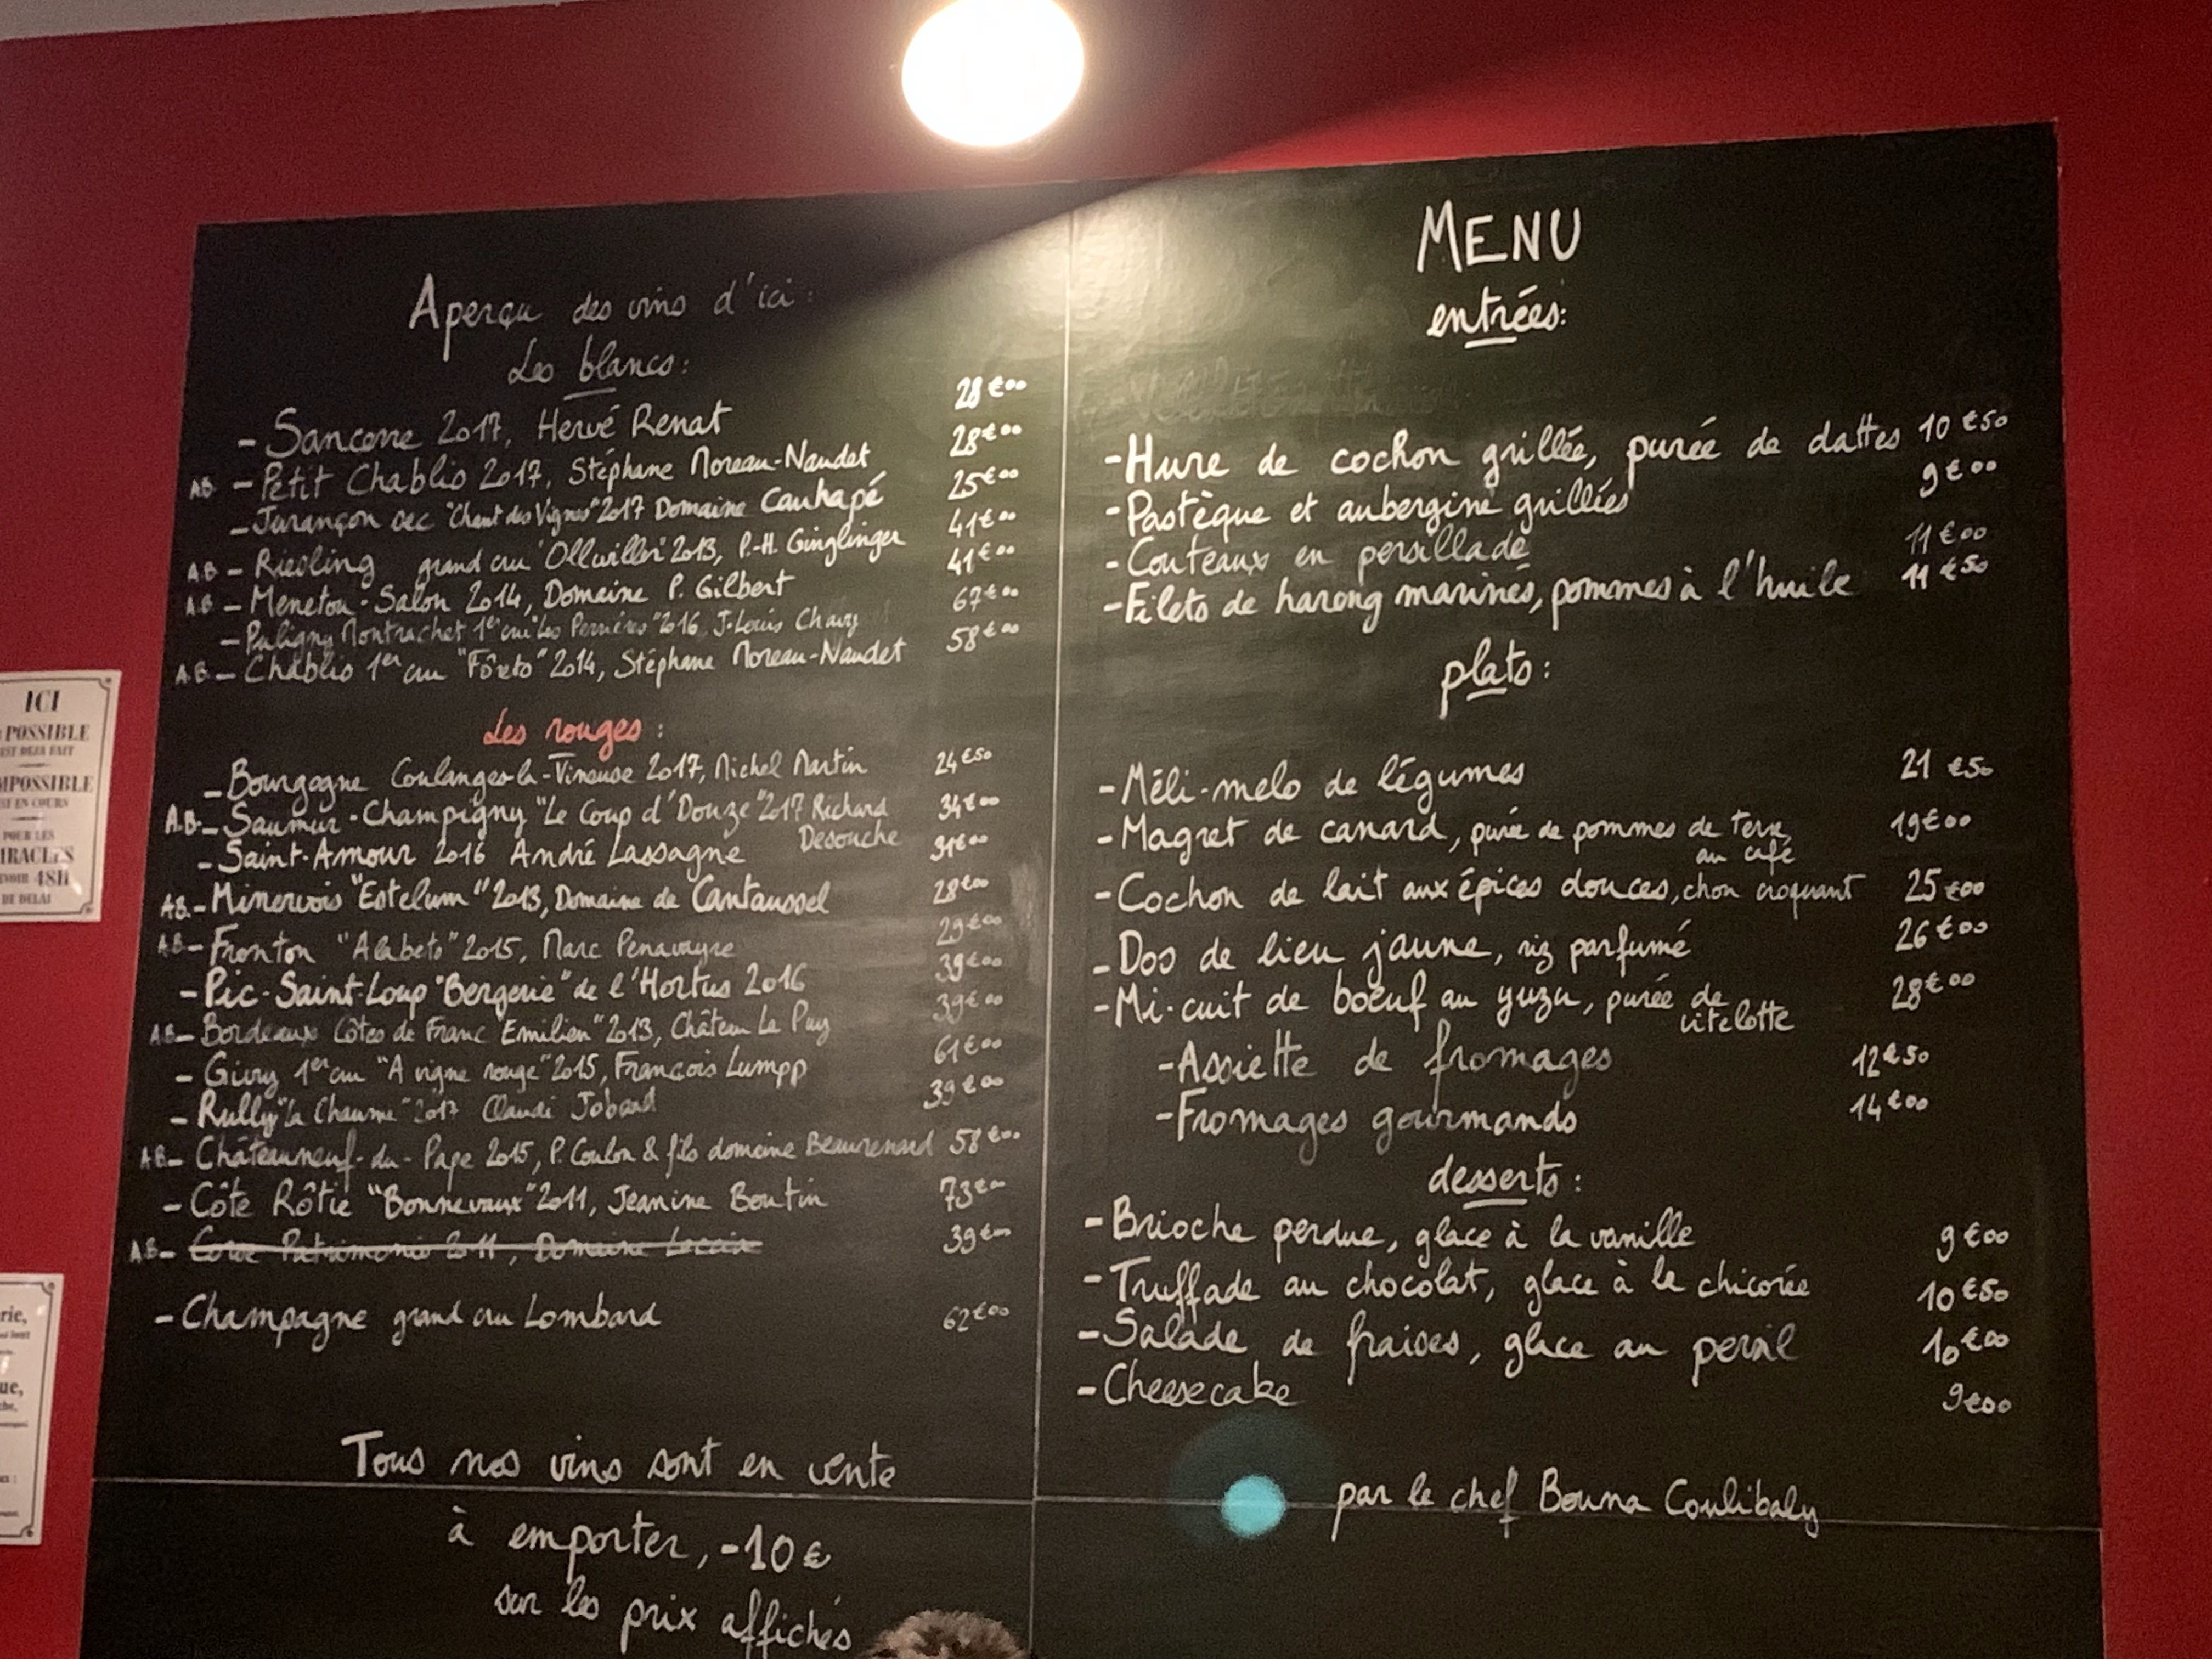 Aperçu des vins d'ici :
Les blancs :
- Sancerre 2017, Hervé Renat 28€00
AB - Petit Chablis 2017, Stéphane Moreau-Naudet 28€00
- Jurançon sec "Chant des Vignes" 2017 Domaine Cauhapé 25€00
A.B - Riesling grand cru 'Ollwiller' 2013, P.-H. Ginglinger 41€00
A.B - Menetou-Salon 2014, Domaine P. Gilbert 41€00
- Puligny Montrachet 1er cru "Les Perrières" 2016 J-Louis Chavy 67€00
A.B - Chablis 1er cru "Forêts" 2014, Stéphane Moreau-Naudet 58€00
Les rouges :
- Bourgogne Coulanges-la-Vineuse 2017, Michel Martin 24€50
A.B - Saumur-Champigny "Le Coup d'Douze" 2017 Richard 34€00
Desouche
- Saint-Amour 2016 André Lassagne 31€00
AB - Minervois "Estelum" 2013, Domaine de Cantaussel 28€00
AB - Fronton "Alabets" 2015, Marc Penavayre 29€00
- Pic-Saint-Loup "Bergerie" de l'Hortus 2016 39€00
A.B - Bordeaux Côtes de Franc "Emilien" 2013, Château Le Puy 39€00
- Givry 1er cru "A vigne rouge" 2015, François Lumpp 61€00
- Rully "la Chaume" 2017 Claudi Jobard 39€00
AB - Châteauneuf-du-Pape 2015, P. Coulon & fils domaine Beaurenard 58€00
- Côte Rôtie "Bonnevaux" 2011, Jeanine Boutin 73€00
AB - Corse Patrimonio 2011, Domaine Leccia 39€00
- Champagne grand cru Lombard 62€00
Tous nos vins sont en vente
à emporter, -10€
sur les prix affichés
MENU
entrées :
- Hure de cochon grillée, purée de dattes 10€50
- Pastèque et aubergine grillées 9€00
- Couteaux en persillade 11€00
- Filets de hareng marinés, pommes à l'huile 11€50
plats :
- Méli-melo de légumes 21€50
- Magret de canard, purée de pommes de terre 19€00
au café
- Cochon de lait aux épices douces, chou croquant 25€00
- Dos de lieu jaune, riz parfumé 26€00
- Mi-cuit de boeuf au yuzu, purée de 28€00
vitelotte
- Assiette de fromages 12€50
- Fromages gourmands 14€00
desserts :
- Brioche perdue, glace à la vanille 9€00
- Truffade au chocolat, glace à la chicorée 10€50
- Salade de fraises, glace au persil 10€00
- Cheesecake 9€00
par le chef Bouna Coulibaly
ICI
POSSIBLE
EST DEJA FAIT
MPOSSIBLE
EST EN COURS
POUR LES
MIRACLES
48H
DE DELAI